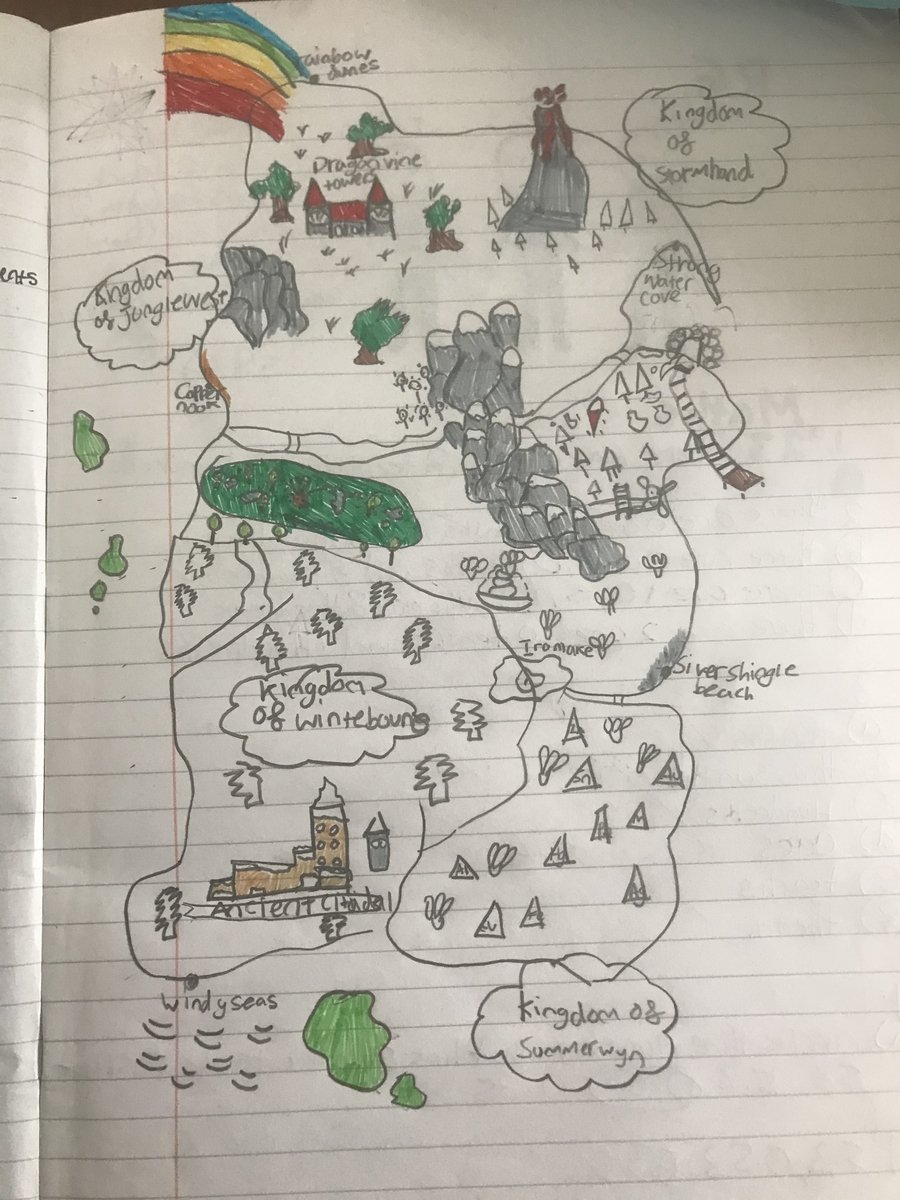 rainbow
dunes
Kingdom
of
Stormhand
Dragonvine
towers
Strong
Water
Cove
ents
Kingdom
of Junglewest
Copper
nook
Iromake
Silvershingle
beach
Kingdom
of Wintebourne
Ancient Citadall
Windyseas
Kingdom of
Summerwyn